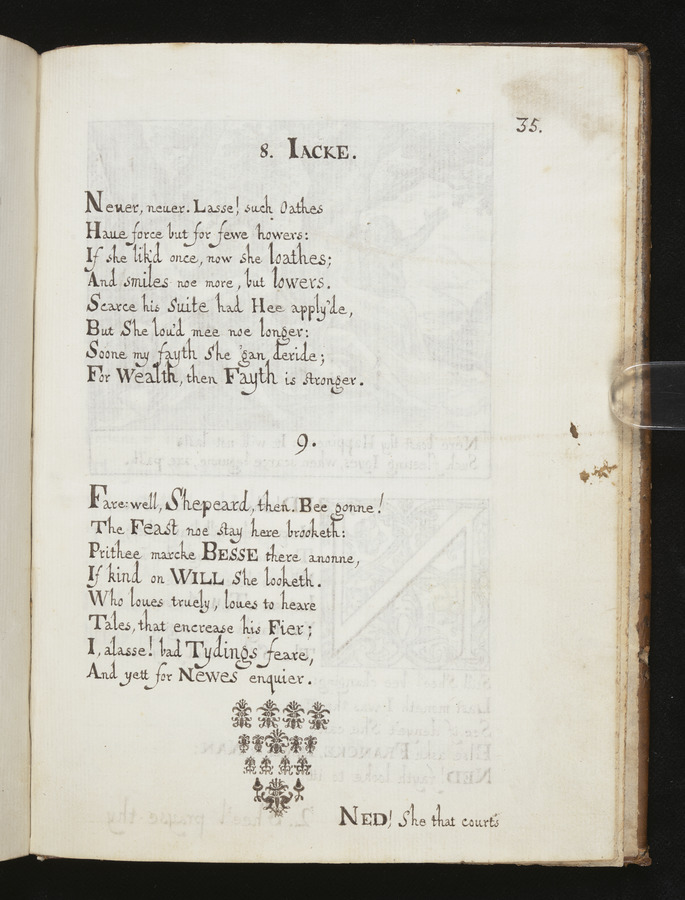 35.
8. IACKE.
Neuer, neuer. Lasse! such Oathes
Haue force but for fewe howers:
If she lik'd once, now she loathes;
And smiles noe more, but lowers.
Scarce his Suite had Hee apply'de,
But She lou'd mee noe longer:
Soone my fayth She 'gan deride;
For Wealth, then Fayth is stronger.
9.
Fare-well, Shepeard, then. Bee gonne!
The Feast noe stay here brooketh:
Prithee marcke BESSE there anonne,
If kind on WILL She looketh.
Who loues truely, loues to heare
Tales, that encrease his Fier;
I, alasse! bad Tydings feare,
And yett for Newes enquier.
NED! She that courts